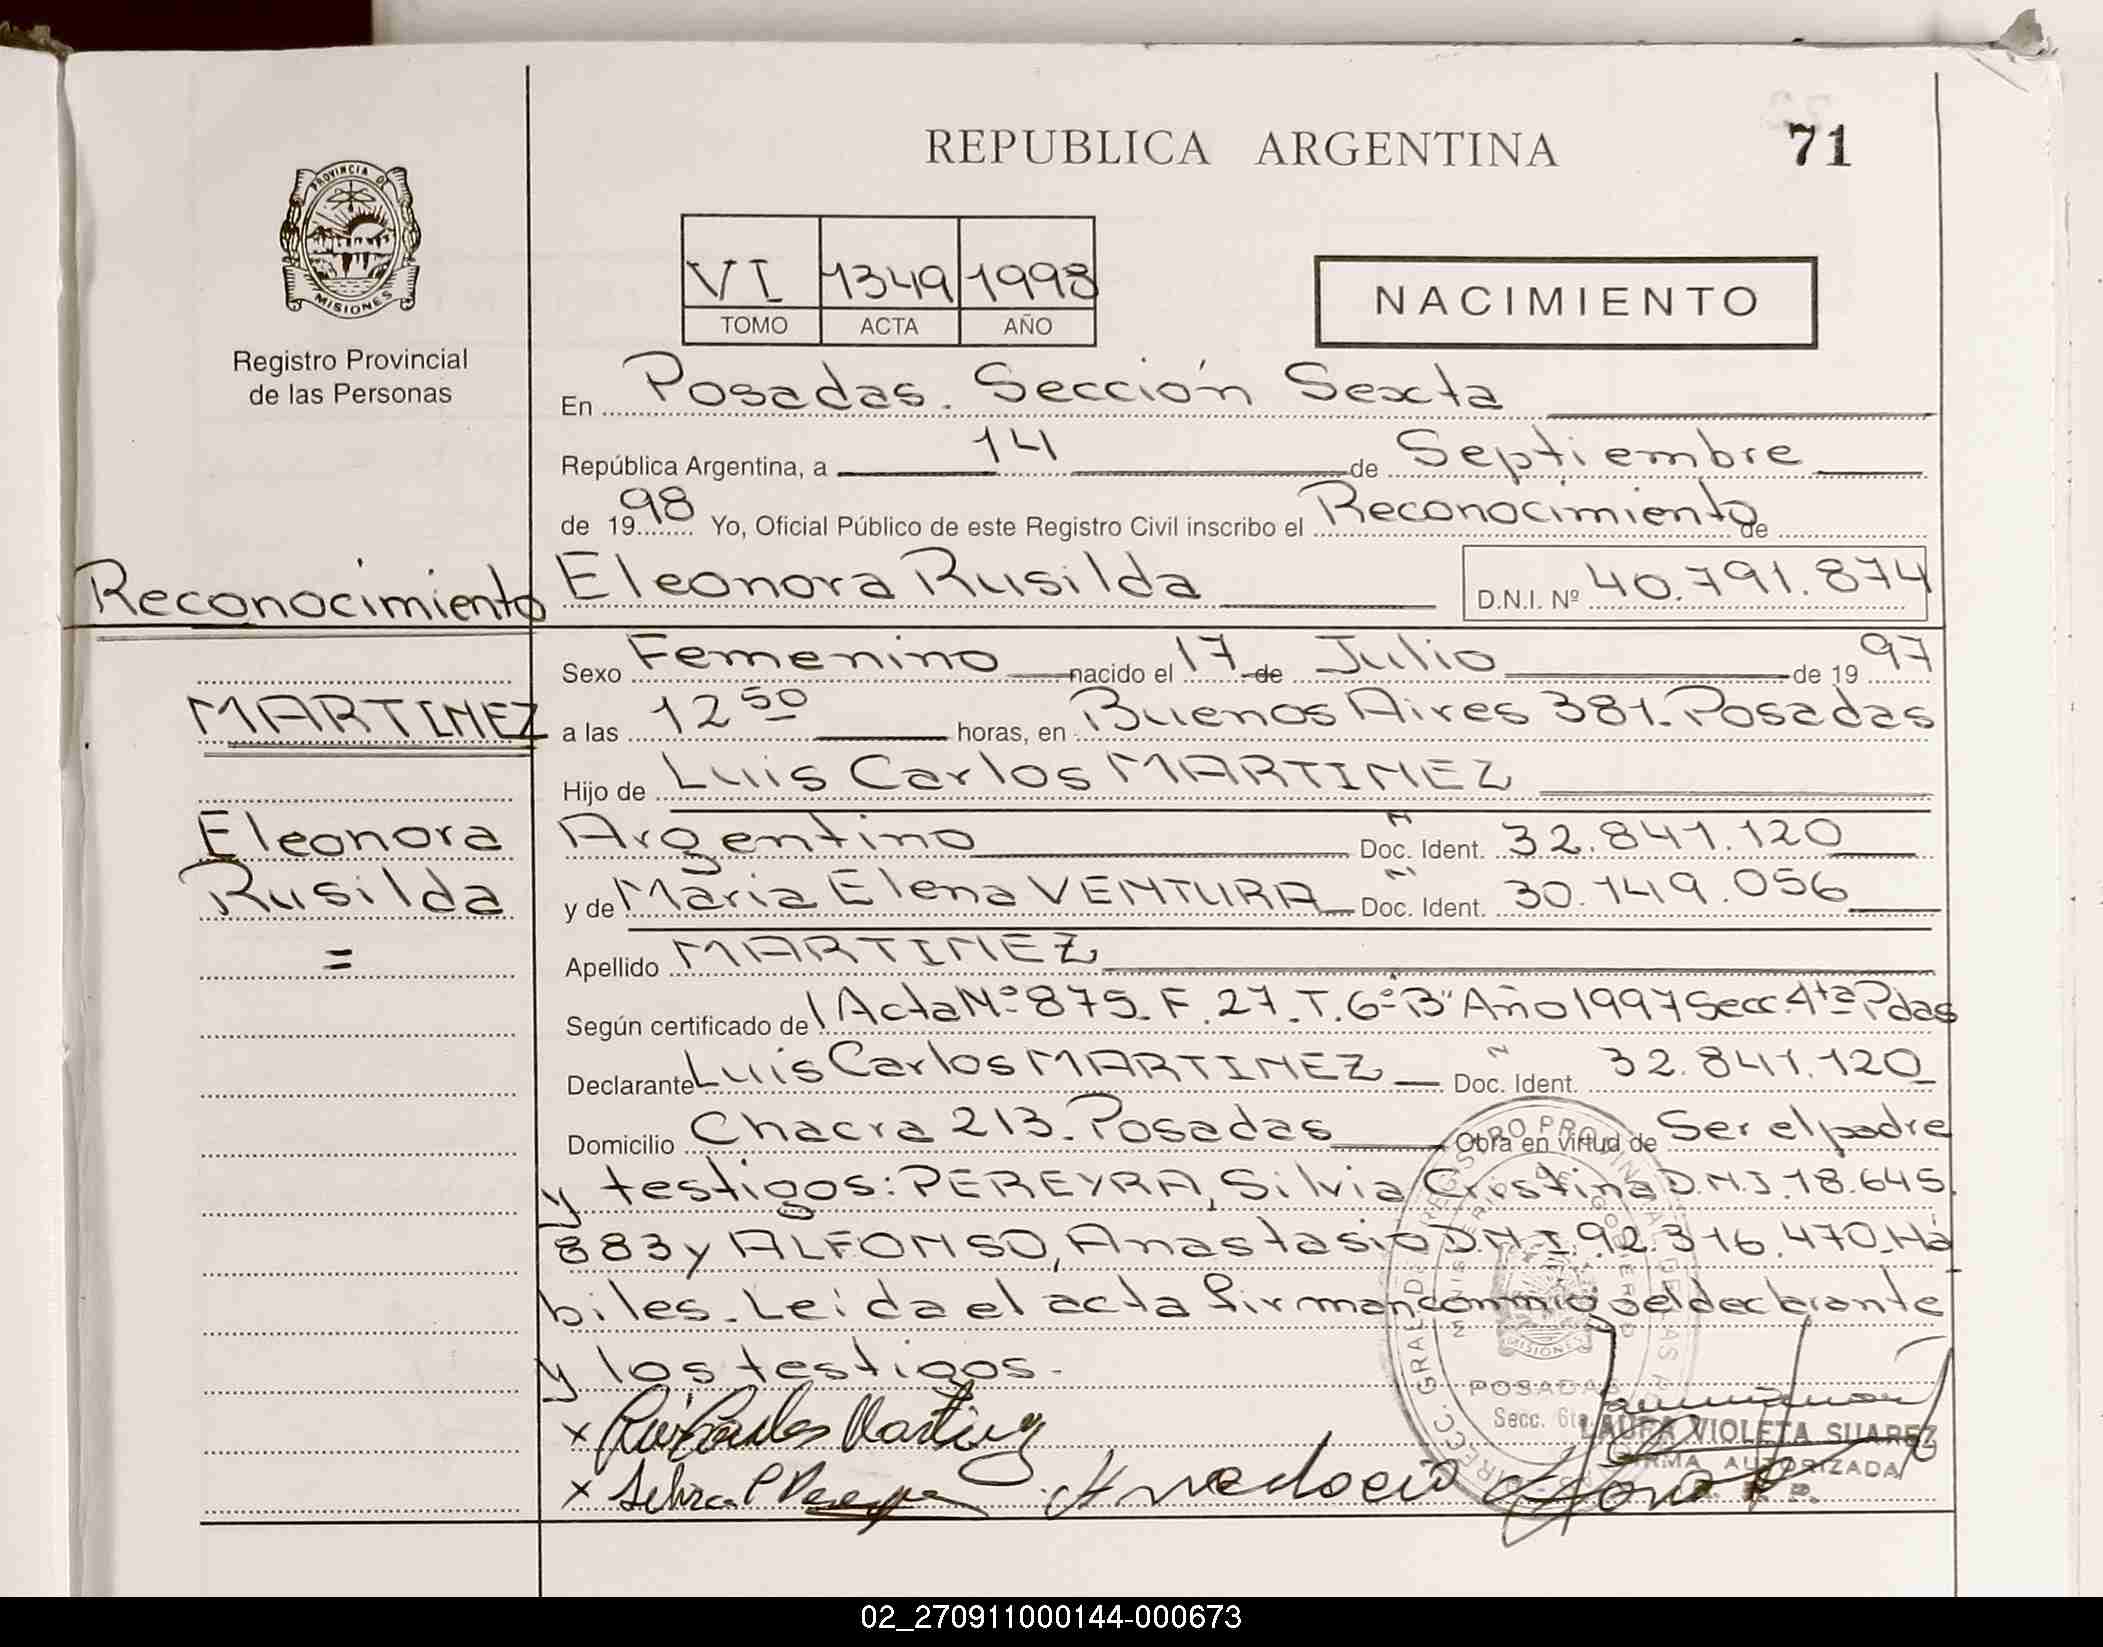 REPUBLICA ARGENTINA
71
PROVINCIA DE
MISIONES
Registro Provincial
de las Personas
VI 1349 1998
TOMO ACTA AÑO
NACIMIENTO
En Posadas. Sección Sexta
República Argentina, a 14 de Septiembre
de 1998 Yo, Oficial Público de este Registro Civil inscribo el Reconocimiento de
Reconocimiento
Eleonora Rusilda D.N.I. Nº 40.791.874
Sexo Femenino nacido el 17 de Julio de 1997
MARTINEZ
a las 12 50 horas, en Buenos Aires 381. Posadas
Hijo de Luis Carlos MARTINEZ
Eleonora
Argentino Doc. Ident. 32.841.120
Rusilda
y de Maria Elena VENTURA Doc. Ident. 30.149.056
=
Apellido MARTINEZ
Según certificado de Acta Nº 875. F. 27. T. 6º "B" Año 1997 Secc. 4ta Pdas
Declarante Luis Carlos MARTINEZ Doc. Ident. 32.841.120
Domicilio Chacra 213. Posadas Obra en virtud de Ser el padre
y testigos: PEREYRA, Silvia Cristina D.N.I. 18.645.
883 y ALFONSO, Anastasio D.N.I. 92.316.470. Há
biles. Leída el acta firman conmigo el declarante
y los testigos.
POSADAS
Secc. 6ta.
LAURA VIOLETA SUAREZ
FIRMA AUTORIZADA
02_270911000144-000673